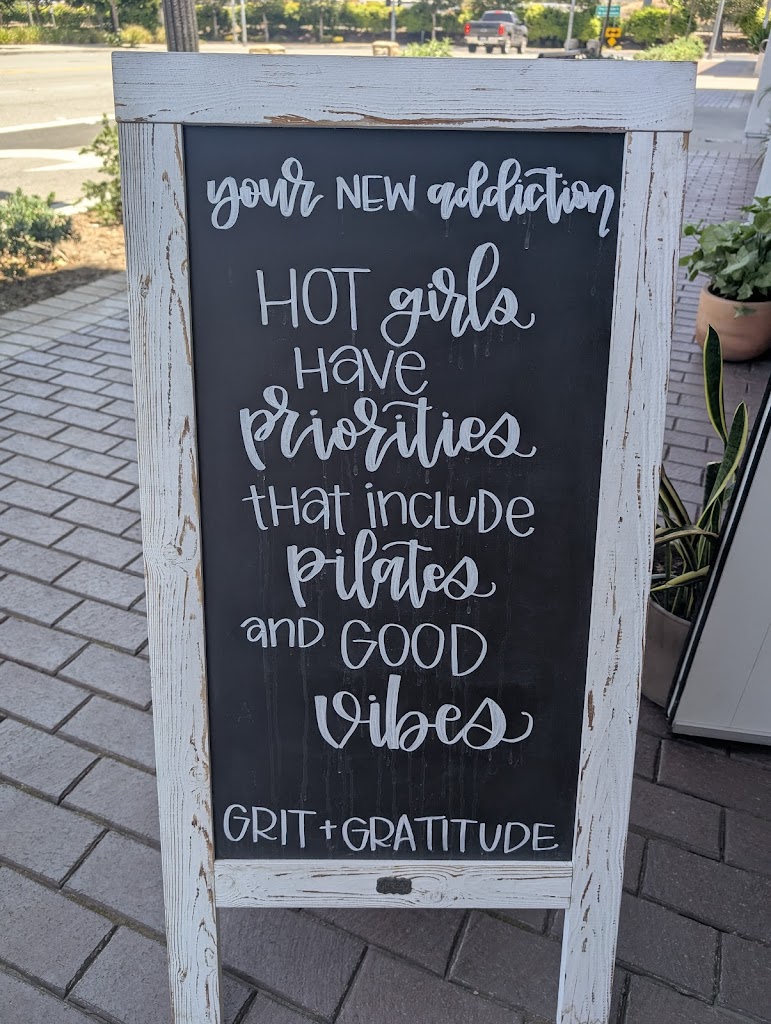 your NEW addiction
HOT girls
HAVE
priorities
THAT INCLUDE
pilates
AND GOOD
vibes
GRIT+GRATITUDE